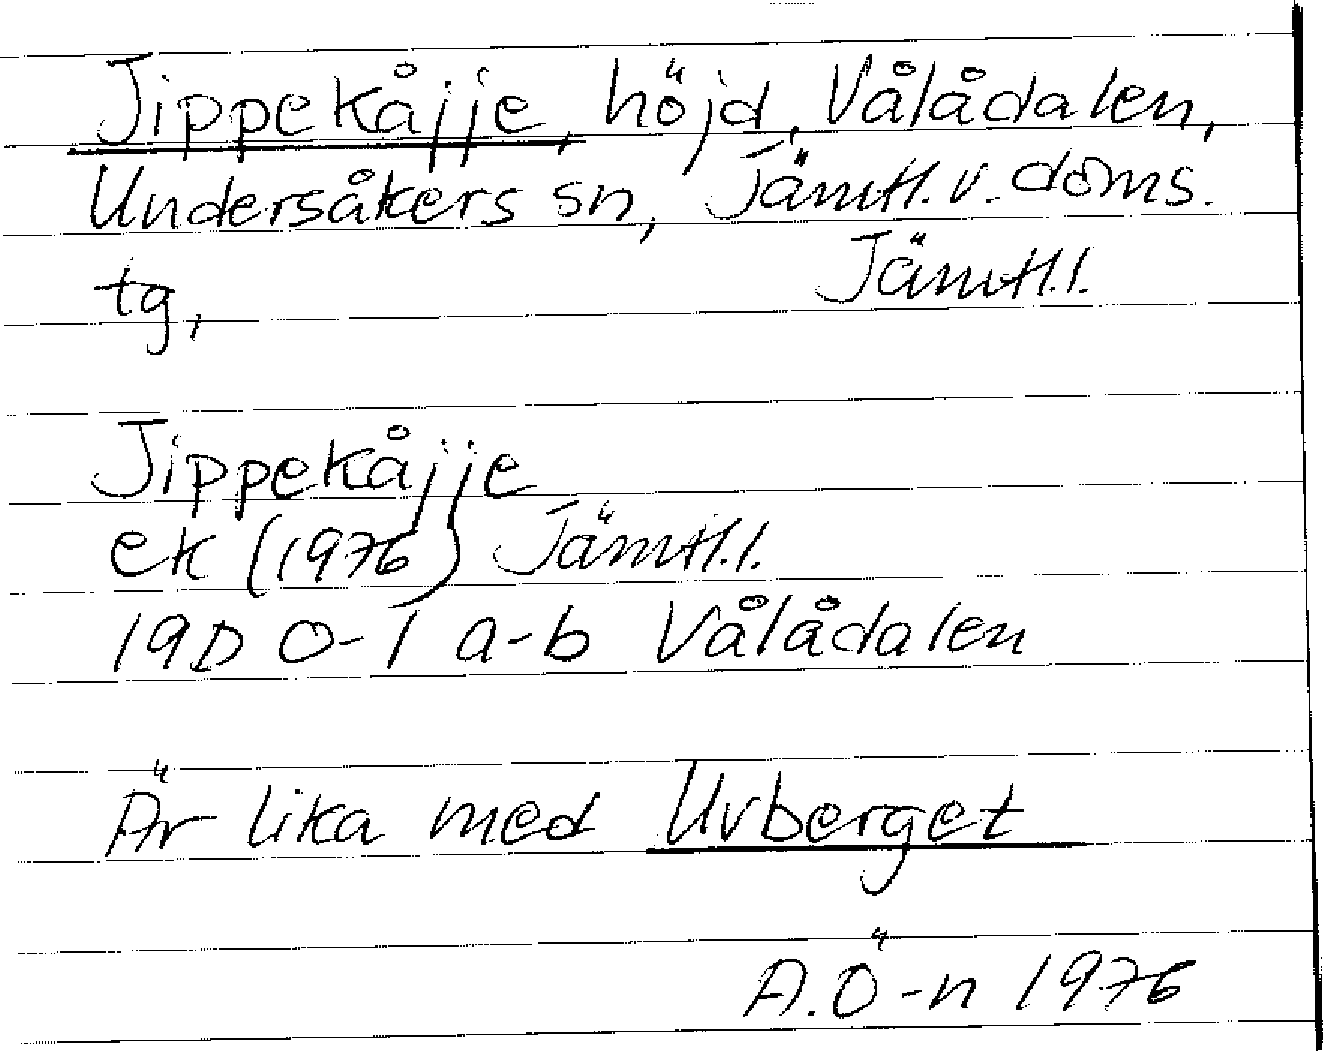 Jippekåjje, höjd, Vålådalen,
Undersåkers sn, Jämtl. v. doms.
tg, Jämtl. l.
Jippekåjje
ek (1976) Jämtl. l.
19D 0-1 a-b Vålådalen
Är lika med Uvberget
A. Ö-n 1976